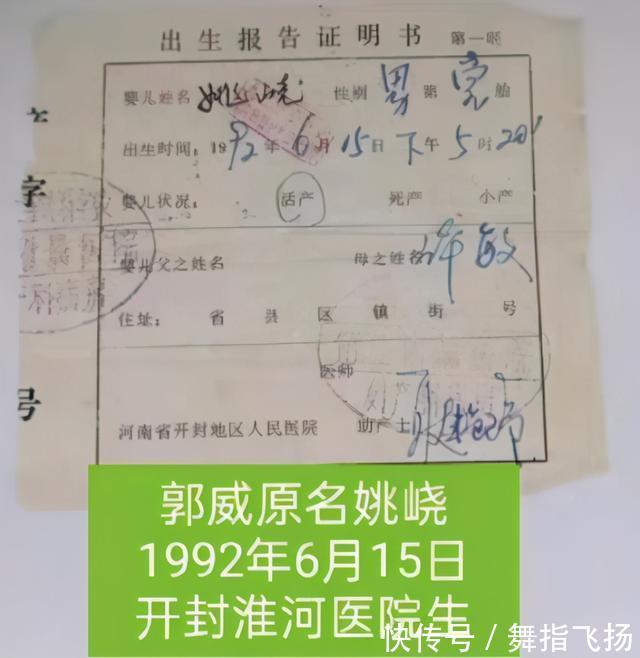 出生报告证明书 第一联
婴儿姓名 姚峣 性别 男 第 壹 胎
出生时间: 1992年6月15日下午5时20'
婴儿状况: 活产 死产 小产
婴儿父之姓名 母之姓名 许敏
住址: 省 县 区 镇 街 号
医师
河南省开封地区人民医院 助产士
字
号
郭威原名姚峣
1992年6月15日
开封淮河医院生
快传号/舞指飞扬